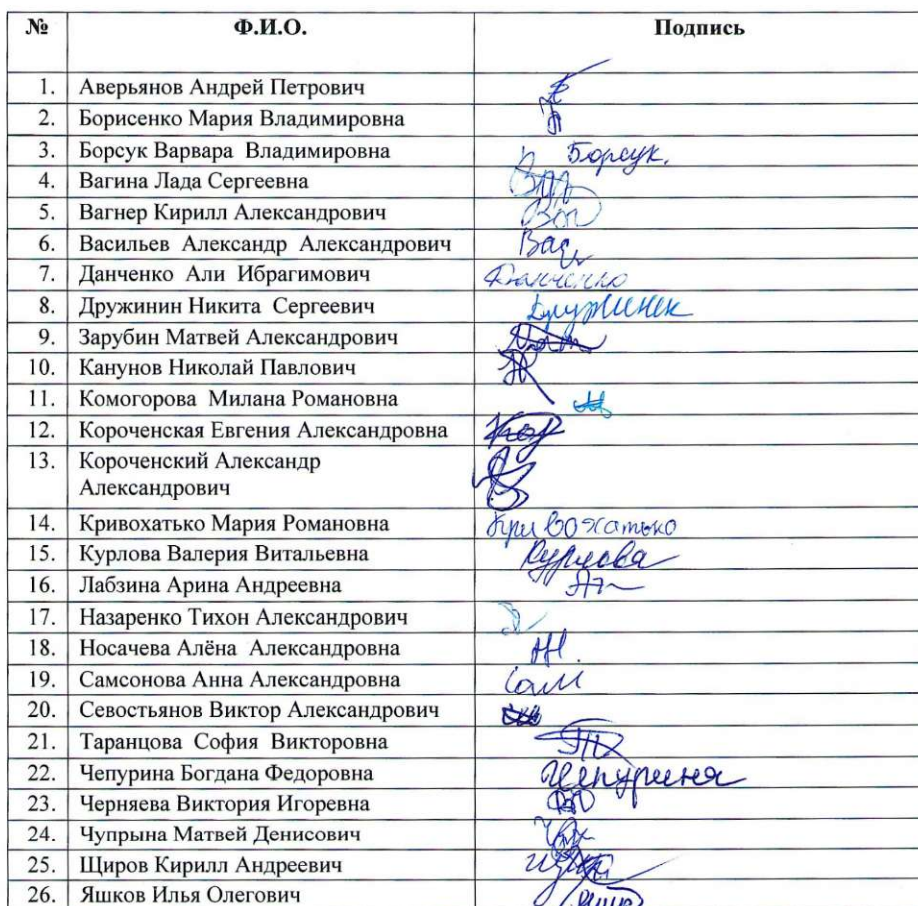 № Ф.И.О. Подпись
1. Аверьянов Андрей Петрович
2. Борисенко Мария Владимировна
3. Борсук Варвара Владимировна Борсук.
4. Вагина Лада Сергеевна
5. Вагнер Кирилл Александрович
6. Васильев Александр Александрович Вас
7. Данченко Али Ибрагимович Данченко
8. Дружинин Никита Сергеевич
9. Зарубин Матвей Александрович
10. Канунов Николай Павлович
11. Комогорова Милана Романовна
12. Короченская Евгения Александровна
13. Короченский Александр
Александрович
14. Кривохатько Мария Романовна Кривохатько
15. Курлова Валерия Витальевна Курлова
16. Лабзина Арина Андреевна
17. Назаренко Тихон Александрович
18. Носачева Алёна Александровна
19. Самсонова Анна Александровна Сам
20. Севостьянов Виктор Александрович
21. Таранцова София Викторовна
22. Чепурина Богдана Федоровна Чепурина
23. Черняева Виктория Игоревна
24. Чупрына Матвей Денисович
25. Щиров Кирилл Андреевич
26. Яшков Илья Олегович